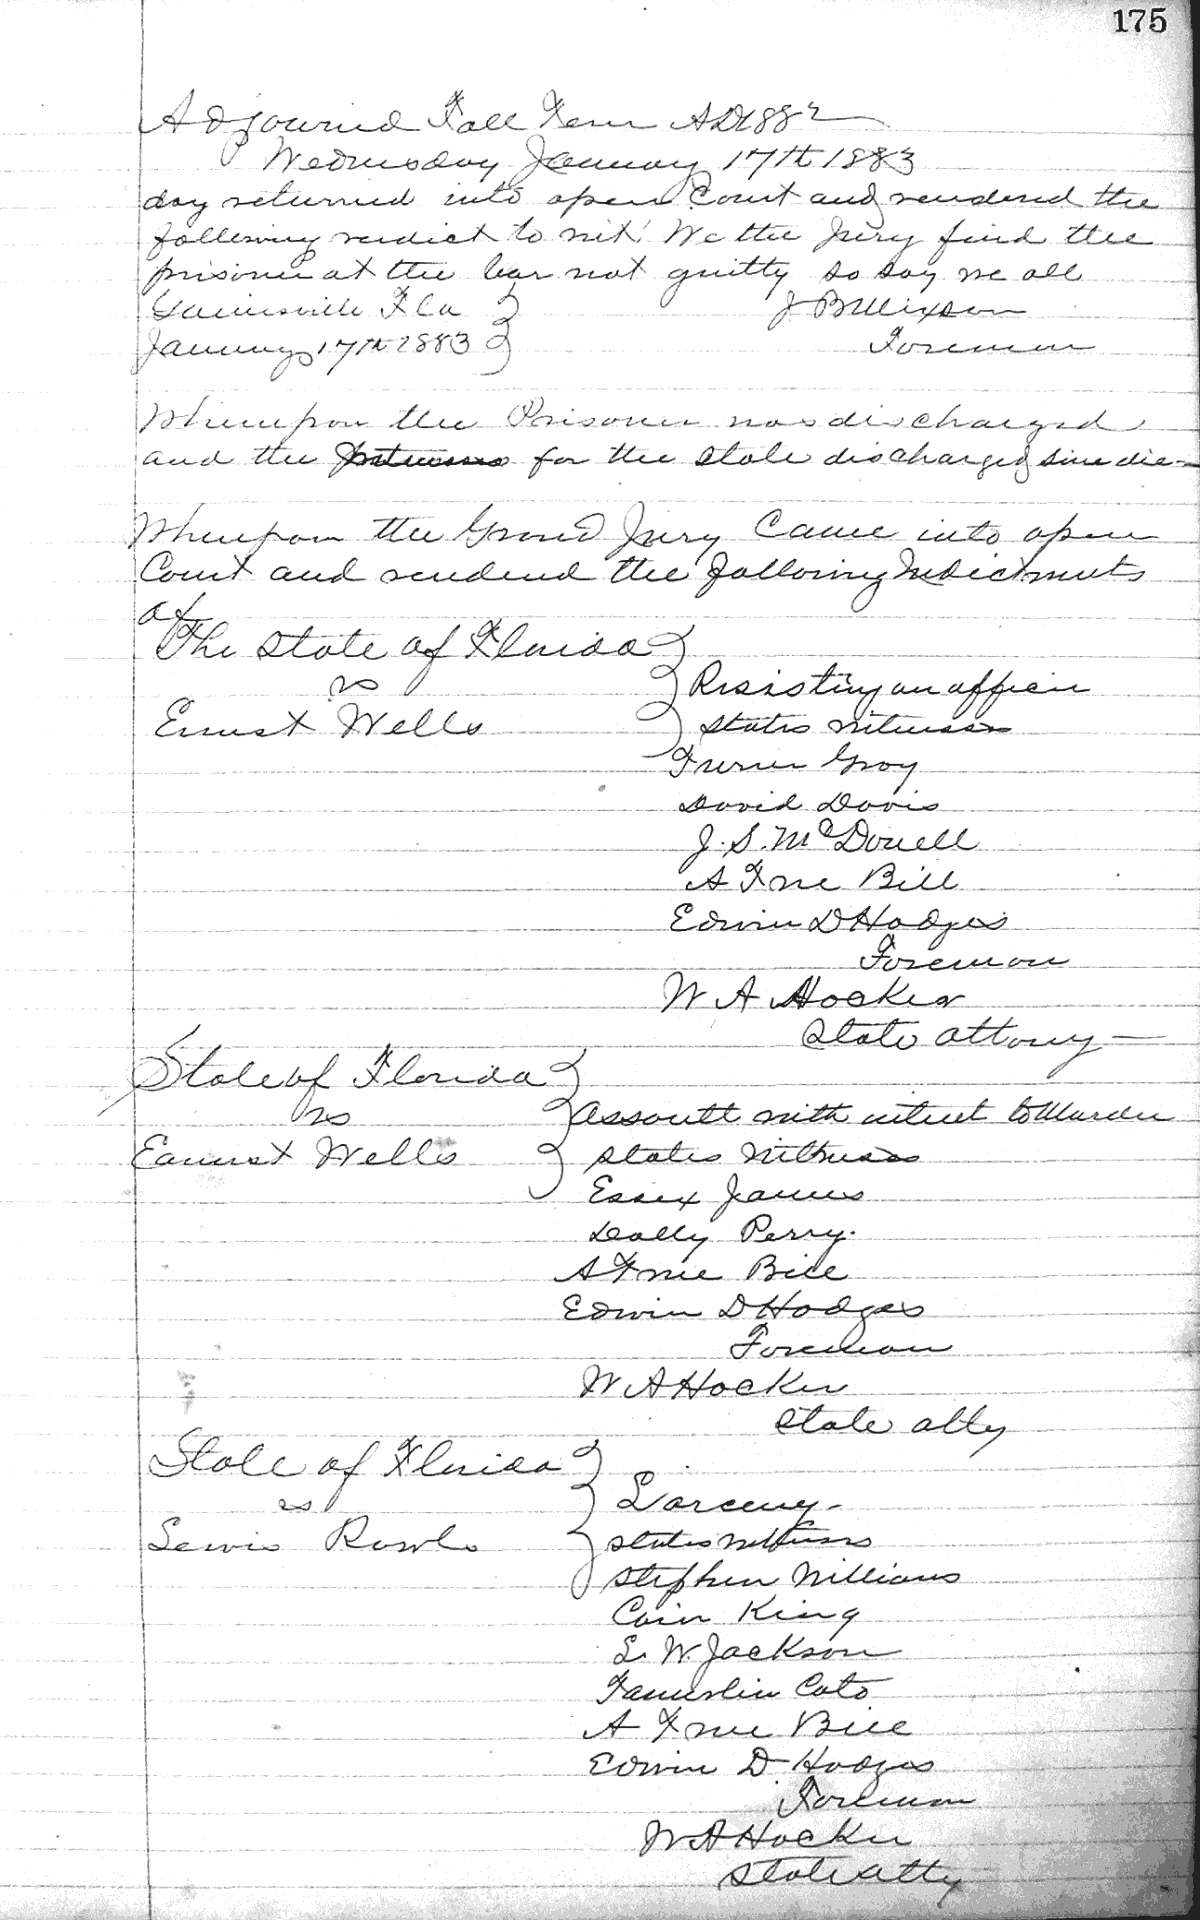 175
Adjourned Fall Term AD 1882
Wednesday January 17th 1883
day returned into open Court and rendered the
following verdict to wit: We the Jury find the
prisoner at the bar not guilty so say we all
Gainesville Fla J B Mixson
January 17th 1883 Foreman
Whereupon the Prisoner was discharged
and the witnesses for the State discharged sine die —
Whereupon the Grand Jury Came into open
Court and rendered the following Indictments
of
The State of Florida
vs Resisting an officer
Ernest Wells States witnesses
Turner Gray
David Davis
J. S. McDonell
A True Bill
Edwin D Hodges
Foreman
W A Hocker
State Attorny —
State of Florida
vs Assault with intent to Murder
Earnest Wells States Witnesses
Essex James
Dolly Perry.
A True Bill
Edwin D Hodges
Foreman
W A Hocker
State Atty
State of Florida
vs Larceny -
Lewis Rawls States witnesses
Stephen Williams
Cain King
L. W. Jackson
Tamerlin Cato
A True Bill
Edwin D. Hodges
Foreman
W A Hocker
State Atty